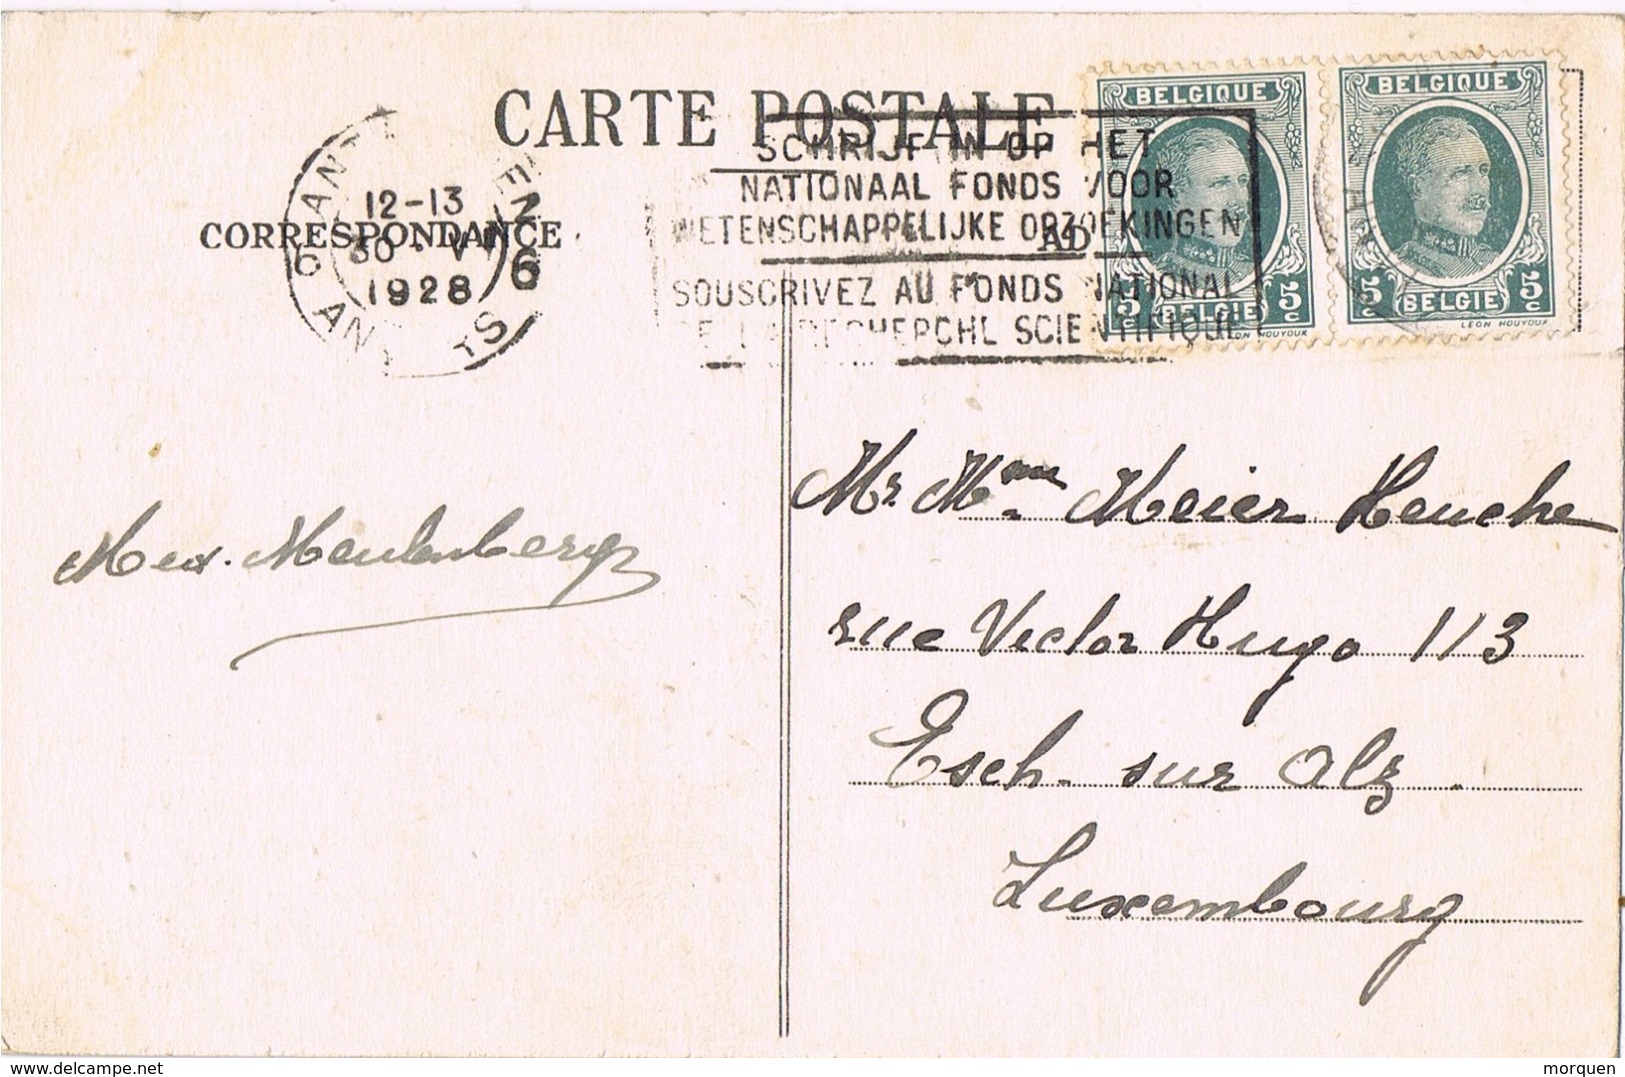 CARTE POSTALE
CORRESPONDANCE
12-13
30 VI
1928
6 6
SCHRIJF IN OP HET
NATIONAAL FONDS VOOR
WETENSCHAPPELIJKE OPZOEKINGEN
SOUSCRIVEZ AU FONDS NATIONAL
DE LA RECHERCHE SCIENTIFIQUE
BELGIQUE
5c 5c
BELGIE
LEON HOUYOUX
BELGIQUE
5c 5c
BELGIE
LEON HOUYOUX
Meulenberg
Mr. Mme Meier Heuche
rue Victor Hugo 113
Esch. sur Alz.
Luxembourg
morquen